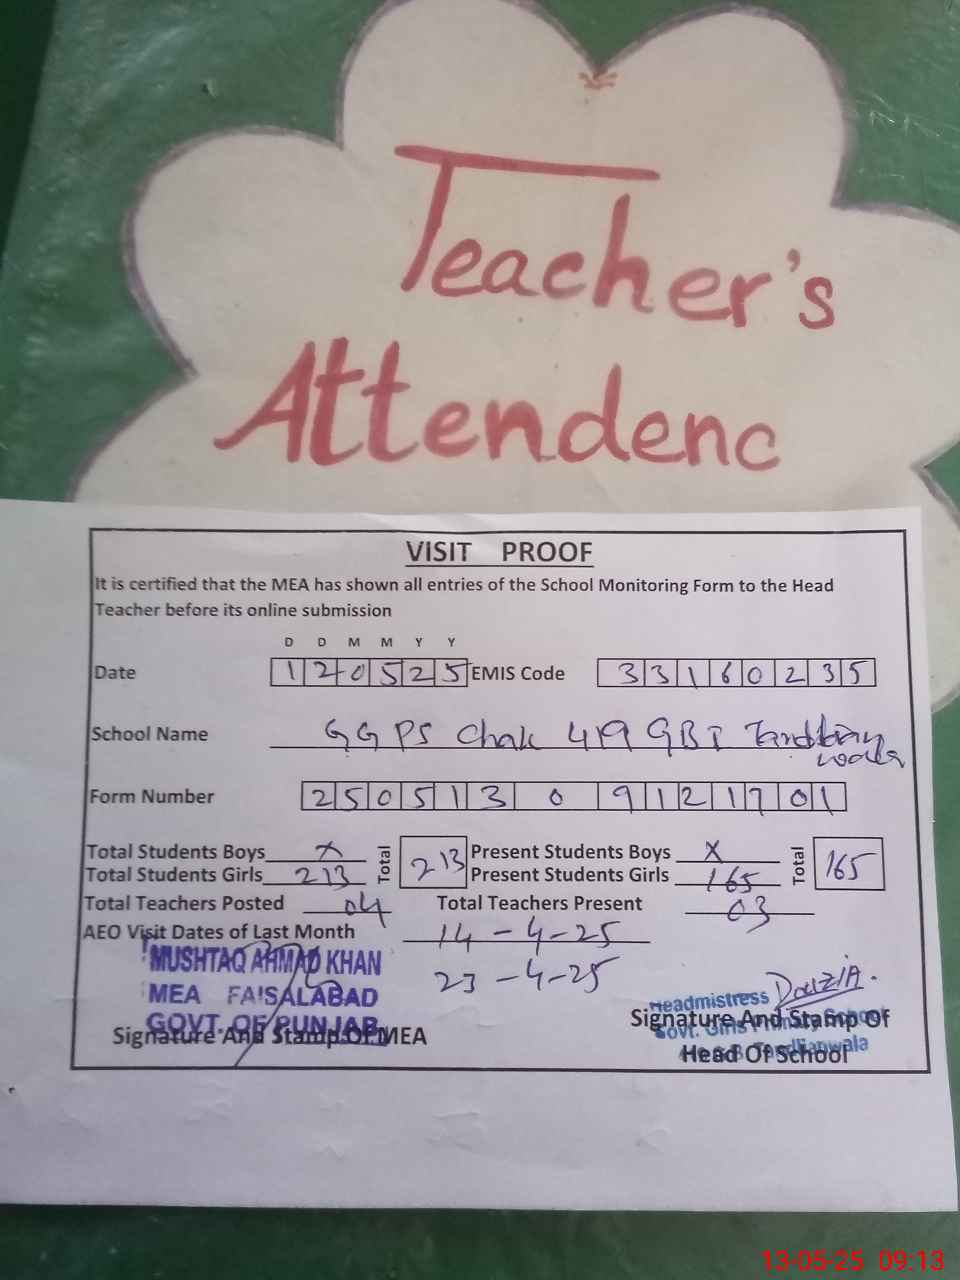 Teacher's
Attendenc
VISIT PROOF
It is certified that the MEA has shown all entries of the School Monitoring Form to the Head
Teacher before its online submission
D D M M Y Y
Date 120525 EMIS Code 33160235
School Name GGPS Chak 419 GB I Tandlian
wala
Form Number 25051309121701
Total Students Boys x Total 213 Present Students Boys x Total 165
Total Students Girls 213 Present Students Girls 165
Total Teachers Posted 04 Total Teachers Present 03
AEO Visit Dates of Last Month 14-4-25
23-4-25
MUSHTAQ AHMAD KHAN
MEA FAISALABAD
GOVT. OF PUNJAB
Signature And Stamp Of MEA
Headmistress
Govt. Girls Primary School
G.B. Tandlianwala
Signature And Stamp Of
Head Of School
13-05-25 09:13